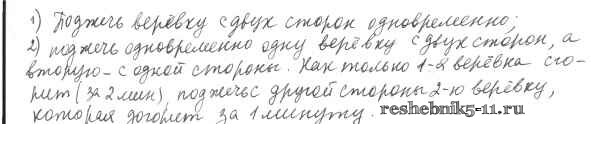 1) Поджечь верёвку с двух сторон одновременно;
2) поджечь одновременно одну верёвку с двух сторон, а
вторую - с одной стороны. Как только 1-я верёвка сго-
рит (за 2 мин), поджечь с другой стороны 2-ю верёвку,
которая догорит за 1 минуту.
reshebnik5-11.ru